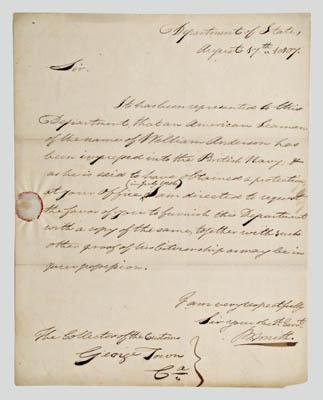 Department of State,
August 17th 1807.
Sir.
It has been represented to this
Department, that an American Seaman
of the name of William Anderson has
been impressed into the British Navy, &
as he is said to have obtained a protection
(in July 1806)
at your Office, I am directed to request
the favor of you to furnish this Department
with a copy of the same, together with such
other proof of his Citizenship as may be in
your possession.
I am very respectfully
Sir your Ob. Servt.
Smith.
The Collector of the Customs
George Town